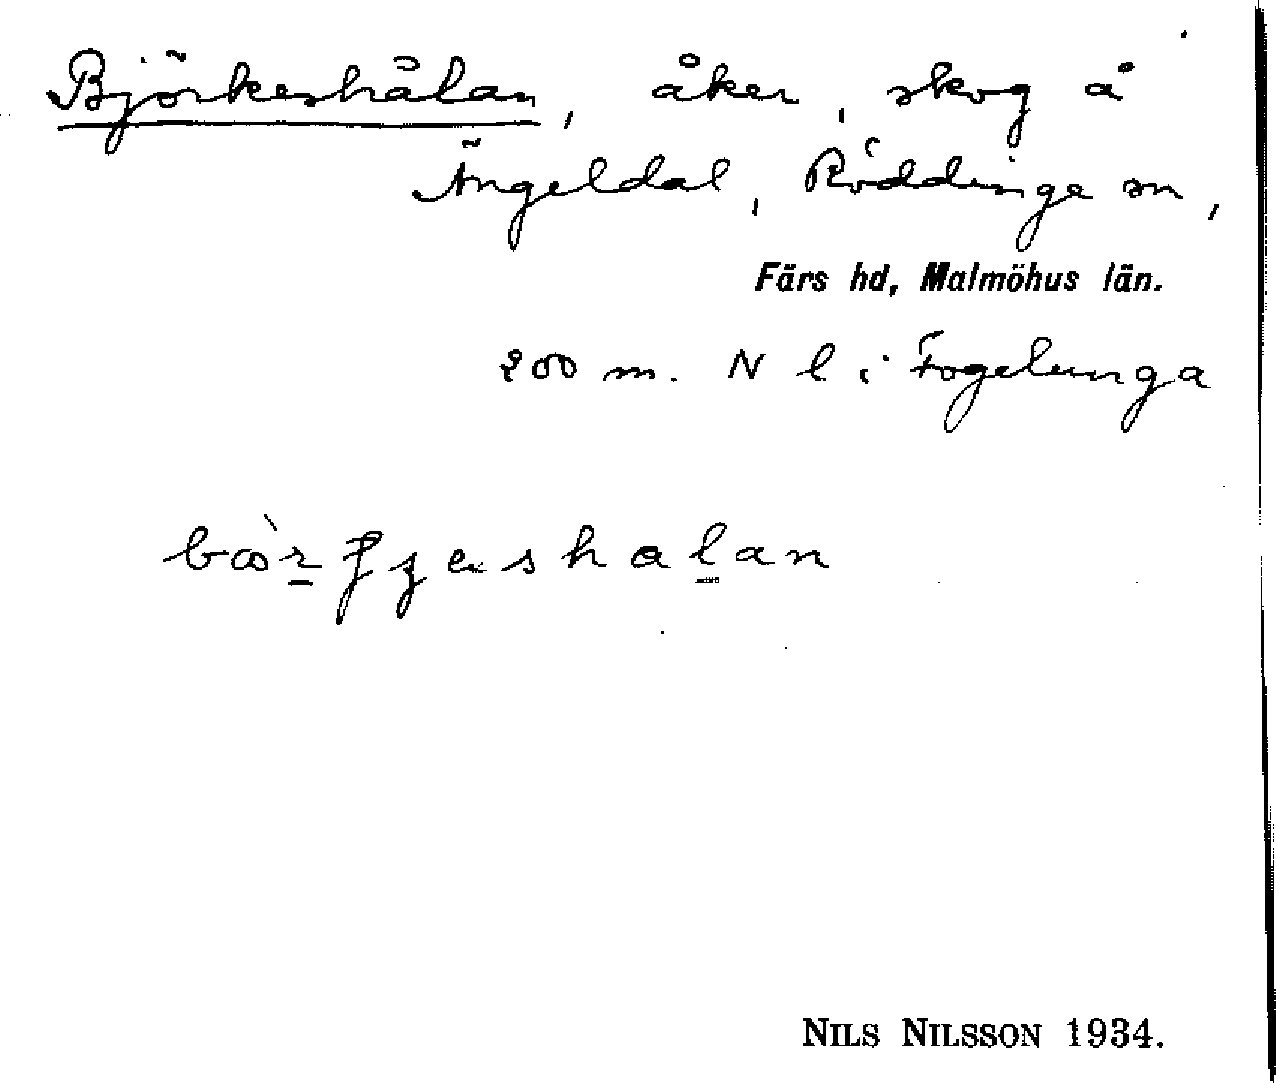 Björkeshålan, åker, skog å
Ängeldal, Röddinge sn,
Färs hd, Malmöhus län.
200 m. N l i Fogelunga
NILS NILSSON 1934.